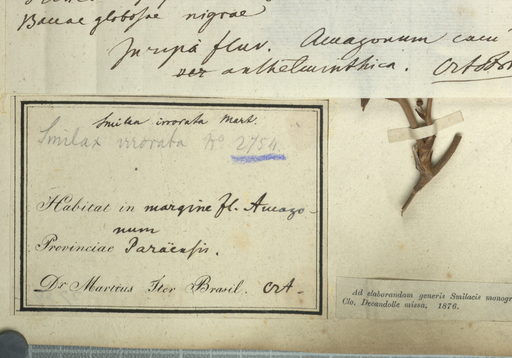 Baccae globosae nigrae
In ripa fluv. Amazonum
anthelminthica.
Smilax irrorata Mart.
Smilax irrorata No 2754.
Habitat in margine fl. Amazo-
num
Provinciae Paraënsis.
Dr Martius Iter Brasil. Oct-
Ad elaborandam generis Smilacis monogr
Clo. Decandolle missa. 1876.